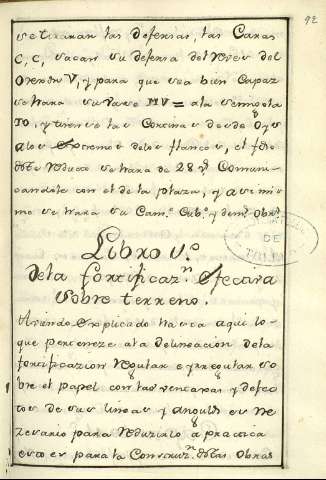 92
se tiraran las defensas, las Caras
C, C, sacan su defensa del Reves del
Orexon V, y para que sea bien Capaz
se hara su Vaso MV = a la
TO, y tirense las Cortinas desde
a los Extremos de los flancos, el foso
deste Reducto se hara de 28 Comuni-
candole con el de la plaza, y assi mis
mo se hara su Camo. Cubo. y demas. Obras
Libro V.o
de la fortificazn. Efectiva
sobre terreno.
Aviendo Explicado hasta aqui lo
que perteneze a la delineacion de la
fortificazion Regular e yrregular so
bre el papel con las ventajas y defec
tos de sus lineas y angulos es ne
zesario para Reduzirlo a practica
esto es para la Construzn. de las Obras
DE